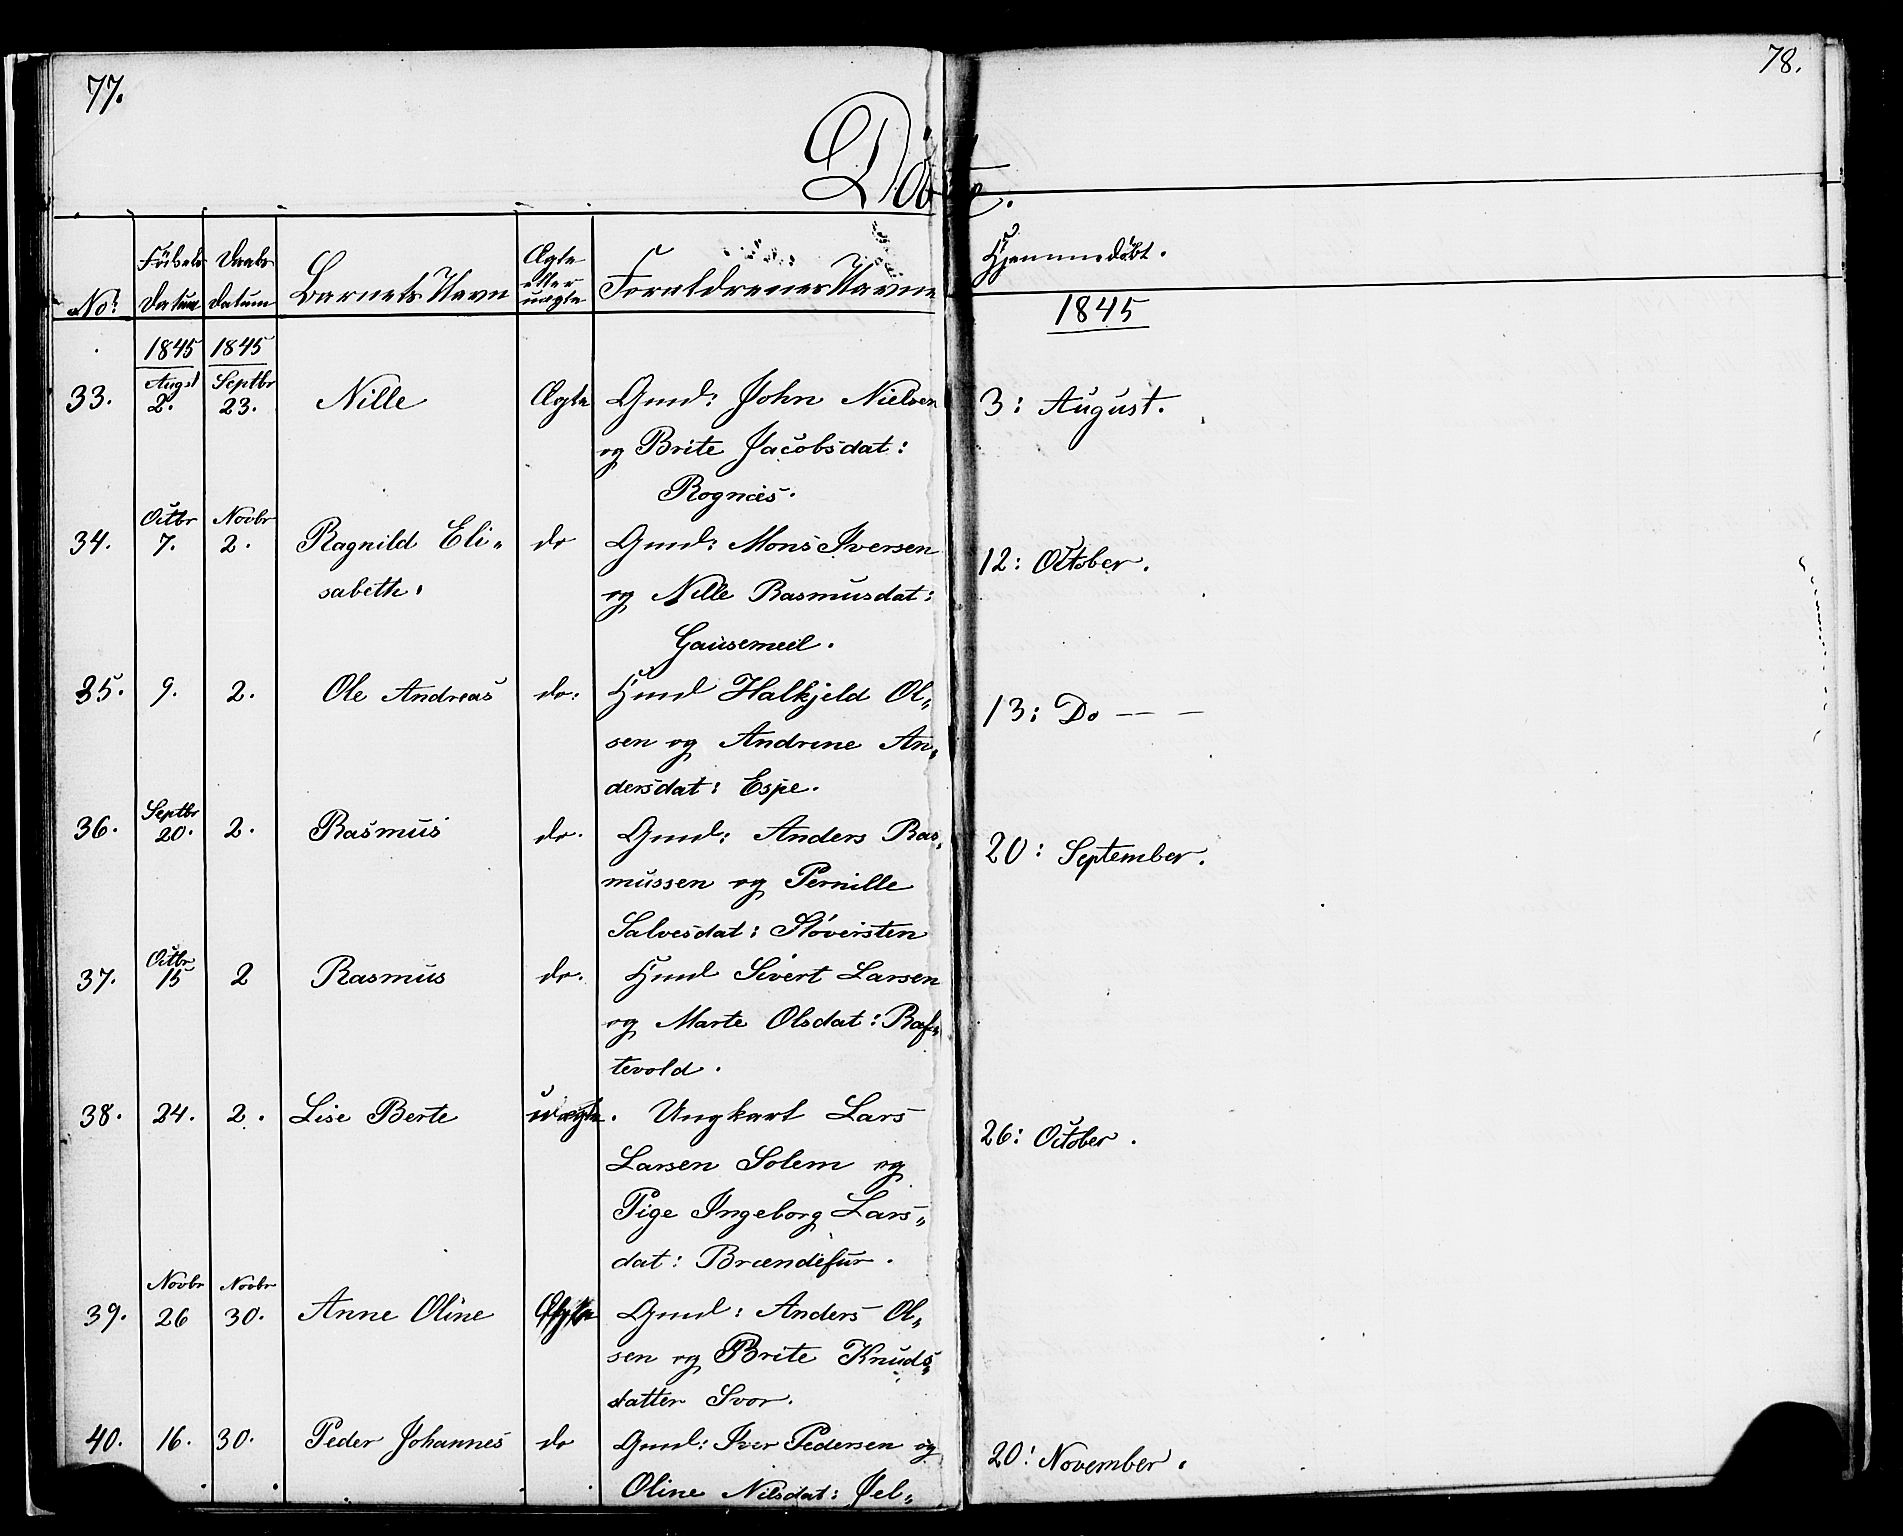 77.
78.
Döbte.
No:
Födsels Datum
Daabs Datum
Barnets Navn
Ægte eller uægte
Forældrenes Navne
Hjemmedöbt.
1845 1845
1845
Augst Septbr
33. 2. 23. Nille Ægte Gmd: John Nielsen 3: August.
og Brite Jacobsdat:
Rognæs.
Octbr Novbr
34. 7. 2. Ragnild Eli- do Gmd: Mons Iversen 12: October.
sabeth. og Nille Rasmusdat:
35. 9. 2. Ole Andreas do: Hmd Halkjeld Ol- 13: Do — —
sen og Andrine An-
dersdat: Espe.
Septbr
36. 20. 2. Rasmus do. Gmd: Anders Ras- 20: September.
mussen og Pernille
Salvesdat: Støversten
Octbr
37. 15 2 Rasmus do. Hmd Sivert Larsen
og Marte Olsdat: Raf-
tevold.
38. 24. 2. Lise Berte uægte. Ungkarl Lars 26: October.
Larsen Solem og
Pige Ingeborg Lars-
dat: Brændefur.
Novbr Novbr
39. 26 30. Anne Oline Ægte Gmd: Anders Ol-
sen og Brite Knuds-
datter Svor.
40. 16. 30. Peder Johannes do Gmd: Iver Pedersen og 20: November.
Oline Nilsdat: Hjel-